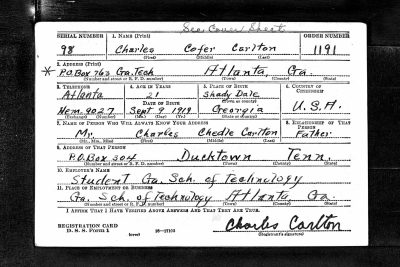 See Cover Sheet
SERIAL NUMBER 1. NAME (Print) ORDER NUMBER
98 Charles Cofer Carlton 1191
(First) (Middle) (Last)
2. ADDRESS (Print)
* P.O. Box 763 Ga. Tech Atlanta, Ga.
(Number and street or R. F. D. number) (Town) (County) (State)
3. TELEPHONE 4. AGE IN YEARS 5. PLACE OF BIRTH 6. COUNTRY OF CITIZENSHIP
Atlanta 21 Shady Dale
DATE OF BIRTH (Town or county)
Hem. 9027 Sept. 9 1919 Georgia U.S.A.
(Exchange) (Number) (Mo.) (Day) (Yr.) (State or country)
7. NAME OF PERSON WHO WILL ALWAYS KNOW YOUR ADDRESS 8. RELATIONSHIP OF THAT PERSON
Mr. Charles Chedle Carlton Father
(Mr., Mrs., Miss) (First) (Middle) (Last)
9. ADDRESS OF THAT PERSON
P.O. Box 304 Ducktown Tenn.
(Number and street or R. F. D. number) (Town) (County) (State)
10. EMPLOYER'S NAME
Student Ga. Sch. of Technology
11. PLACE OF EMPLOYMENT OR BUSINESS
Ga. Sch. of Technology Atlanta, Ga.
(Number and street or R. F. D. number) (Town) (County) (State)
I AFFIRM THAT I HAVE VERIFIED ABOVE ANSWERS AND THAT THEY ARE TRUE.
REGISTRATION CARD Charles Carlton
D. S. S. Form 1 (over) 16-17105 (Registrant's signature)